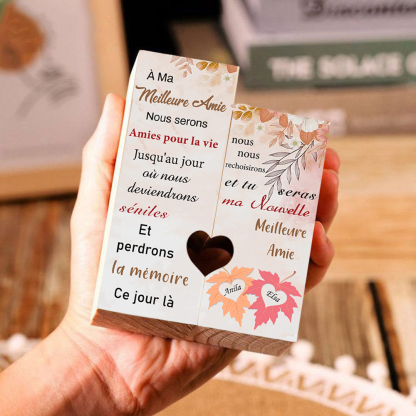 À Ma
Meilleure Amie
Nous serons
Amies pour la vie
Jusqu'au jour
où nous
deviendrons
séniles
Et
perdrons
la mémoire
Ce jour là
nous
nous
rechoisirons
et tu seras
ma Nouvelle
Meilleure
Amie
Anila
Elsa
THE SOLACE O